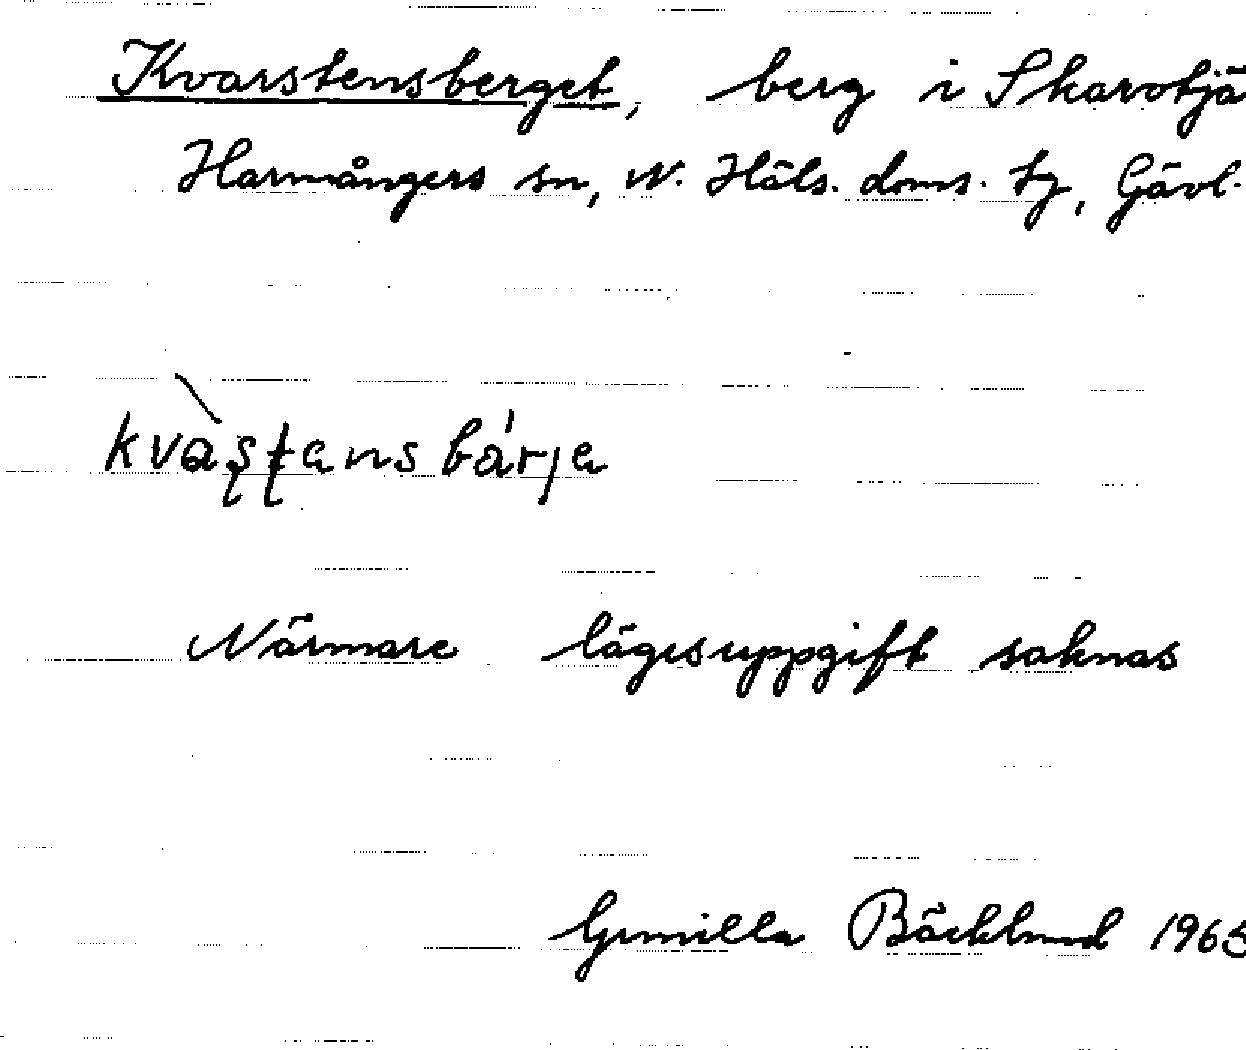 Kvarstensberget, berg i Skarvtjä
Harmångers sn, N. Häls. doms. tg, Gävl.
kvàʂʈans bár̩ja
Närmare lägesuppgift saknas
Gunilla Bäcklund 1965